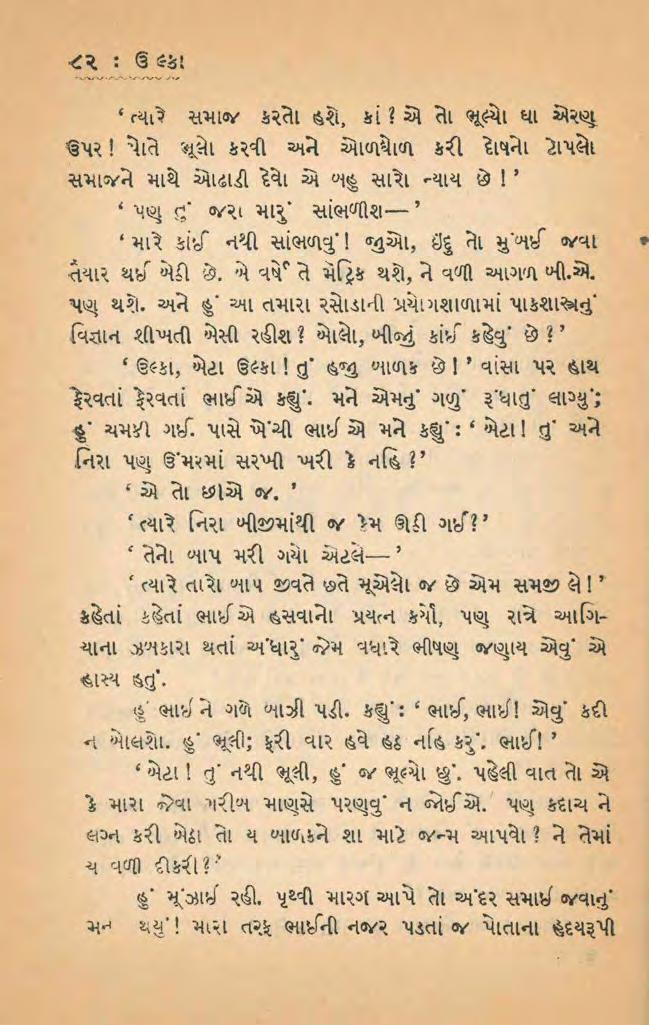 ૮૨ : ઉલ્કા
‘ ત્યારે સમાજ કરતો હશે, કાં ? એ તો ભૂલ્યો ઘા એરણ
ઉપર ! પોતે ભૂલો કરવી અને ઓળઘોળ કરી દોષનો ટોપલો
સમાજને માથે ઓઢાડી દેવો એ બહુ સારો ન્યાય છે ! ’
‘ પણ તું જરા મારું સાંભળીશ— ’
‘ મારે કાંઈ નથી સાંભળવું ! જુઓ, ઇંદુ તો મુંબઈ જવા
તૈયાર થઈ બેઠી છે. બે વર્ષે તે મેટ્રિક થશે, ને વળી આગળ બી.એ.
પણ થશે. અને હું આ તમારા રસોડાની પ્રયોગશાળામાં પાકશાસ્ત્રનું
વિજ્ઞાન શીખતી બેસી રહીશ ? બોલો, બીજું કાંઈ કહેવું છે ? ’
‘ ઉલ્કા, બેટા ઉલ્કા ! તું હજુ બાળક છે ! ’ વાંસા પર હાથ
ફેરવતાં ફેરવતાં ભાઈએ કહ્યું. મને એમનું ગળું રૂંધાતું લાગ્યું;
હું ચમકી ગઈ. પાસે ખેંચી ભાઈએ મને કહ્યું : ‘ બેટા ! તું અને
નિરા પણ ઉંમરમાં સરખી ખરી કે નહિ ? ’
‘ એ તો છીએ જ. ’
‘ ત્યારે નિરા બીજીમાંથી જ કેમ ઊઠી ગઈ ? ’
‘ તેનો બાપ મરી ગયો એટલે— ’
‘ ત્યારે તારો બાપ જીવતે છતે મૂએલો જ છે એમ સમજી લે ! ’
કહેતાં કહેતાં ભાઈએ હસવાનો પ્રયત્ન કર્યો, પણ રાત્રે આગિ-
યાના ઝબકારા થતાં અંધારું જેમ વધારે ભીષણ જણાય એવું એ
હાસ્ય હતું.
હું ભાઈને ગળે બાઝી પડી. કહ્યું : ‘ ભાઈ, ભાઈ ! એવું કદી
ન બોલશો. હું ભૂલી; ફરી વાર હવે હઠ નહિ કરું. ભાઈ ! ’
‘ બેટા ! તું નથી ભૂલી, હું જ ભૂલ્યો છું. પહેલી વાત તો એ
કે મારા જેવા ગરીબ માણસે પરણવું ન જોઈએ. પણ કદાચ ને
લગ્ન કરી બેઠા તો ય બાળકને શા માટે જન્મ આપવો ? ને તેમાં
ય વળી દીકરી ? ’
હું મૂંઝાઈ રહી. પૃથ્વી મારગ આપે તો અંદર સમાઈ જવાનું
મન થયું ! મારા તરફ ભાઈની નજર પડતાં જ પોતાના હૃદયરૂપી